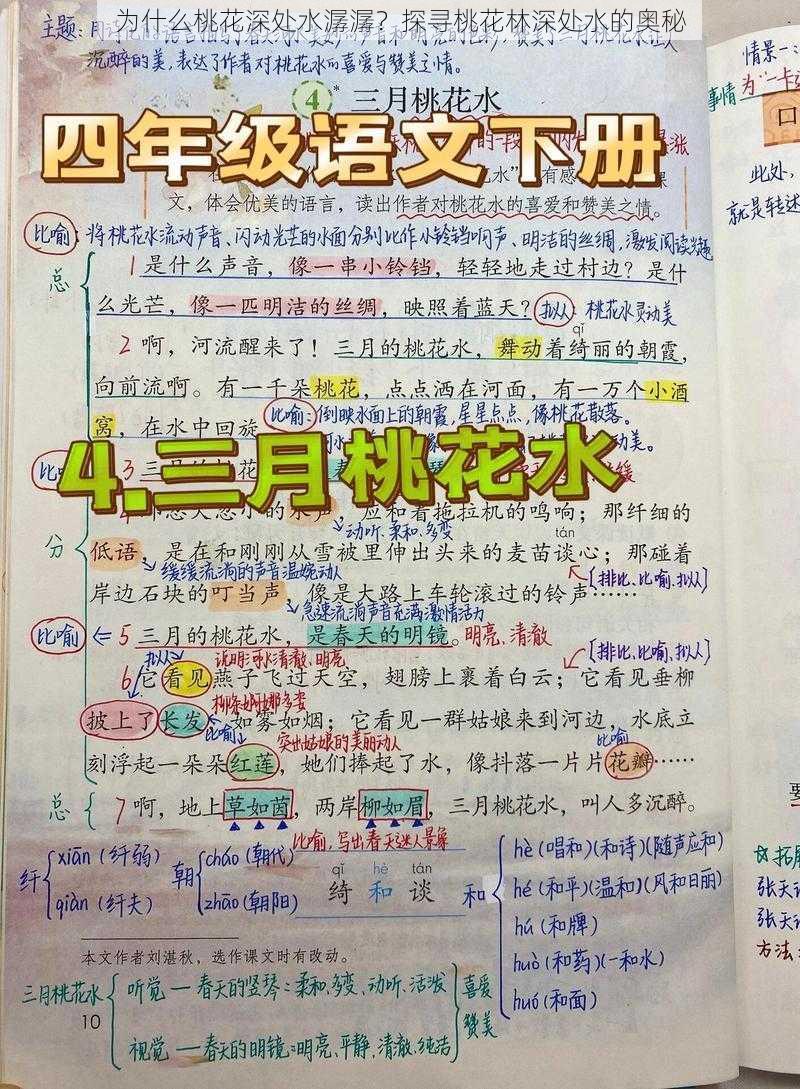 为什么桃花深处水潺潺？探寻桃花林深处水的奥秘
主题:
沉醉的美,表达了作者对桃花水的喜爱与赞美之情。
情景一:
为"一卡
事情
口
④* 三月桃花水
四年级语文下册
涨
此处,
就是转述
文，体会优美的语言，读出作者对桃花水的喜爱和赞美之情。
比喻: 将桃花水流动声音、闪动光芒的水面分别比作小铃铛响声、明洁的丝绸,激发阅读兴趣
总
1 是什么声音，像一串小铃铛，轻轻地走过村边？是什
么光芒，像一匹明洁的丝绸，映照着蓝天？ 拟人: 桃花水灵动美
qǐ
2 啊，河流醒来了！三月的桃花水，舞动着绮丽的朝霞，
向前流啊。有一千朵桃花，点点洒在河面，有一万个小酒
窝，在水中回旋
比喻:倒映水面上的朝霞,星星点点,像桃花散落。
动美。
4.三月桃花水
比喻
3
缓
应和着拖拉机的鸣响；那纤细的
动听、柔和、多变
tán
分
低语，是在和刚刚从雪被里伸出头来的麦苗谈心；那碰着
缓缓流淌的声音温婉动人
[排比、比喻、拟人]
岸边石块的叮当声，像是大路上车轮滚过的铃声……
急速流淌声音充满激情活力
比喻 ⇐ 5 三月的桃花水，是春天的明镜。明亮、清澈
拟人 说明河水清澈、明亮
[排比、比喻、拟人]
6 它看见燕子飞过天空，翅膀上裹着白云；它看见垂柳
柳条婀娜多姿
披上了长发，如雾如烟；它看见一群姑娘来到河边，水底立
比喻 突出姑娘的美丽动人
比喻
刻浮起一朵朵红莲，她们捧起了水，像抖落一片片花瓣……
总 7 啊，地上草如茵，两岸柳如眉，三月桃花水，叫人多沉醉。
比喻,写出春天迷人景象
纤 xiān (纤弱)
qiàn (纤夫)
朝 cháo (朝代)
zhāo (朝阳)
qǐ hè tán
绮 和 谈
和 hè (唱和)(和诗)(随声应和)
hé (和平)(温和)(风和日丽)
hú (和牌)
huò (和药)(一和水)
huó (和面)
本文作者刘湛秋，选作课文时有改动。
三月桃花水 听觉 — 春天的竖琴:柔和、多变、动听、活泼
视觉 — 春天的明镜:明亮、平静、清澈、纯洁
喜爱
赞美
10
拓展
张天
张天
方法: